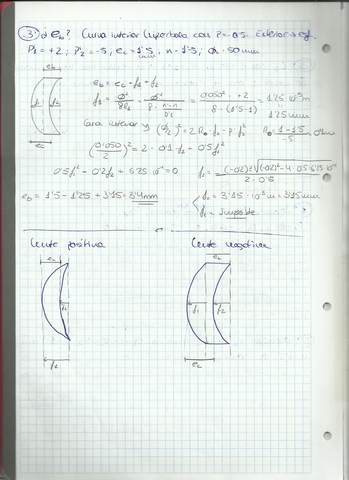 3. ¿ e_b? Curva interior hiperbola con p = -0.5. Exterior → esf.
P1 = +2; P'2 = -5; e_c = 1'5 mm; n = 1'5; Ø = 50 mm
e_b = e_c - f1 + f2
f1 = Ø² / 8R1 = Ø² / 8 · (n-n / P1) = 0'050² · +2 / 8 · (1'5-1) = 1'25 · 10⁻³ m
1'25 mm
Cara interior y (Ø/2)² = 2 R0 · f2 - p · f²
R0 = 1-1'5 / -5 = 0'1 m
(0'050 / 2)² = 2 · 0'1 · f2 - 0'5 f2²
0'5 f² - 0'2 f2 + 6'25 · 10⁻⁴ = 0
f2 = -(-0'2) ± √(-0'2)² - 4 · 0'5 · 6'25 · 10⁻⁴ / 2 · 0'5
e_b = 1'5 - 1'25 + 3'15 = 3'4 mm
f2 = 3'15 · 10⁻³ m = 3'15 mm
f2 = Imposible
Lente positiva
Lente negativa
e_c
e_b
f1
f2
f2
f1
e_c